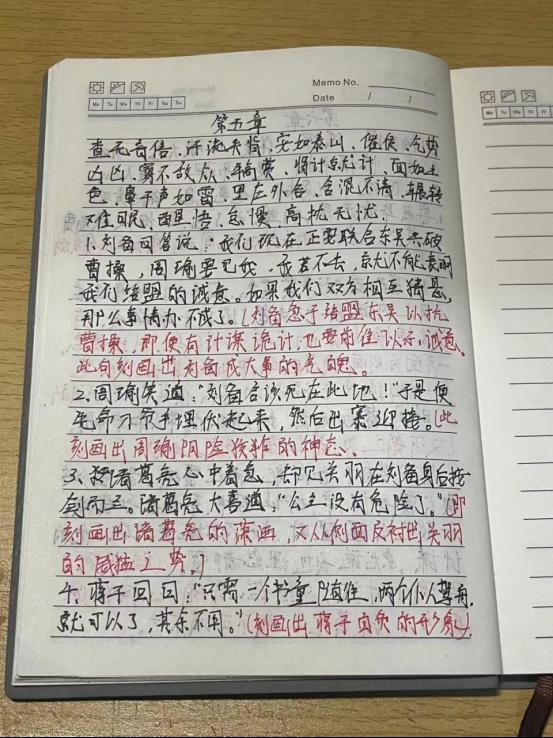 Memo No.
Date / /
Mo Tu We Th Fr Sa Su
第五章
杳无音信、汗流夹背、安如泰山、催促、气势
凶凶、寡不敌众、犒赏、将计就计、面如土
色、鼻干声如雷、里应外合、含混不清、辗转
难眠、醒悟、怠慢、高枕无忧
1.刘备回答说："我们现在正要联合东吴共破
曹操,周瑜要见我,我若不去,就不能表明
我们结盟的诚意。如果我们双方相互猜忌,
那么事情办不成了。(刘备急于结盟东吴以抗
曹操,即使有计谋诡计,也要前往以示诚意。
此句刻画出刘备成大事的气魄。
2.周瑜笑道:"刘备合该死在此地!"于是便
先命刀斧手埋伏起来,然后出寨迎接。(此
刻画出周瑜阴险狡猾的神态。
3.诸葛亮心中着急,却见关羽在刘备身后按
剑而立。诸葛亮大喜道,"公主没有危险了。"(即
刻画出诸葛亮的潇洒,又从侧面反衬出关羽
的威猛之势。)
4.蒋干回曰:"只需一个书童随往,两个仆人驾舟,
就可以了,其余不用。"(刻画出蒋干自负的形象)。